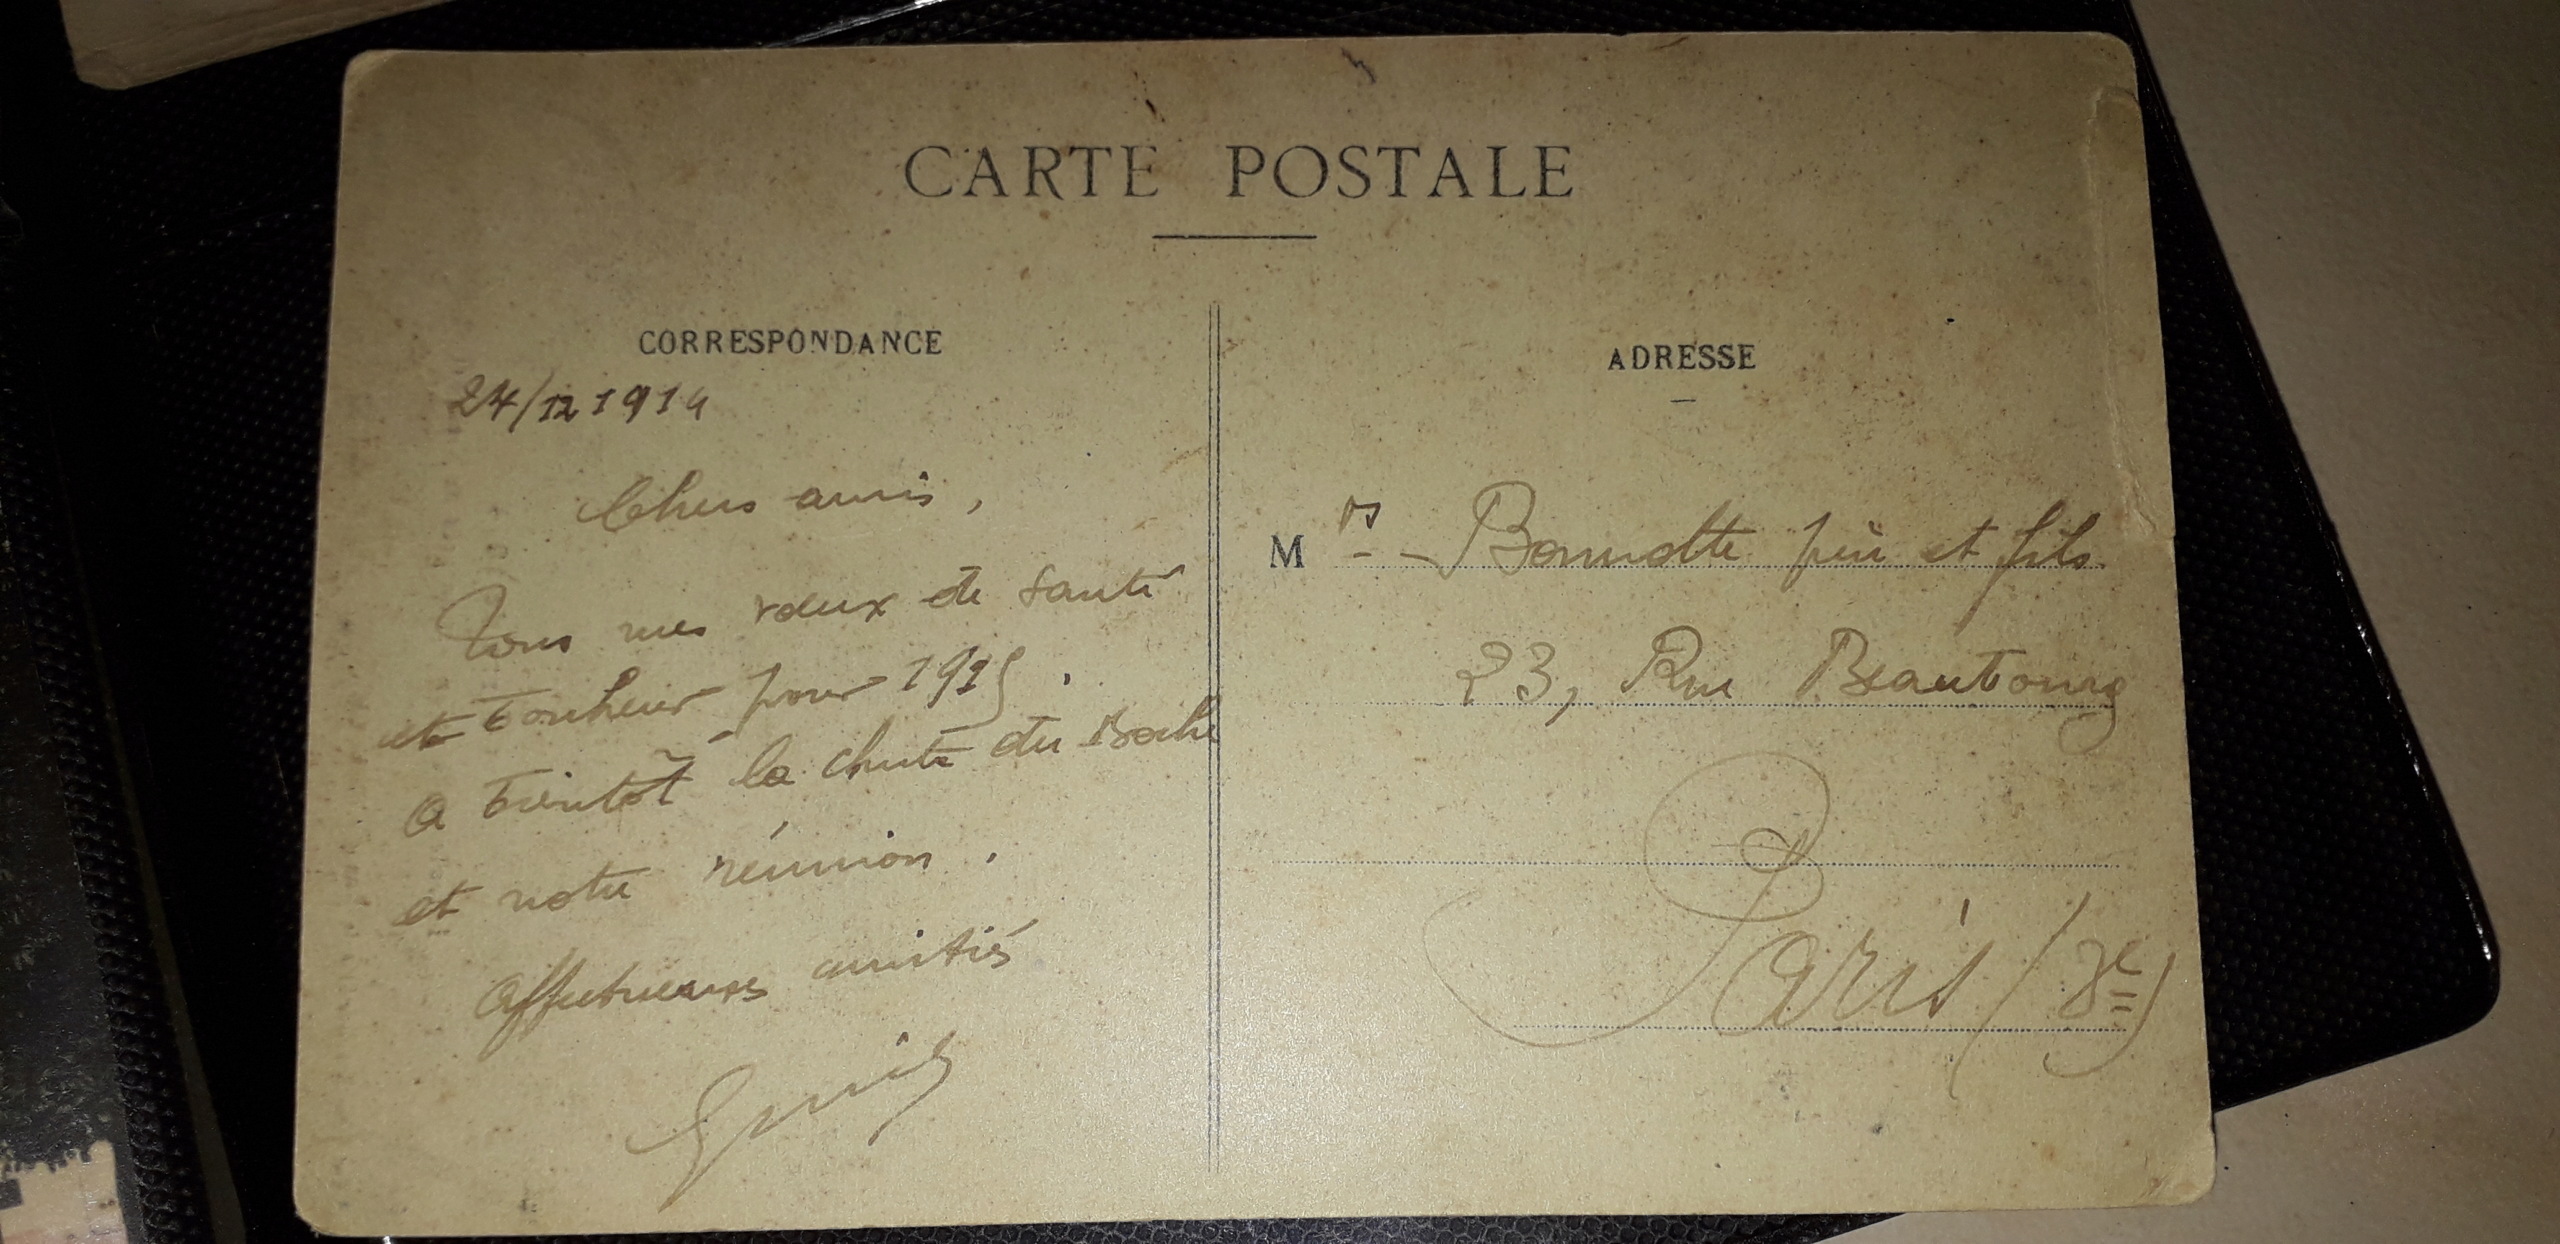 CARTE POSTALE
CORRESPONDANCE
24/12 1914
Chers amis,
Tous mes vœux de santé
et bonheur pour 1915.
A bientôt la chute du Boche
et notre réunion.
Affectueuses amitiés
ADRESSE
Mrs Bonnotte père et fils
23, Rue Beaubourg
Paris (3e)